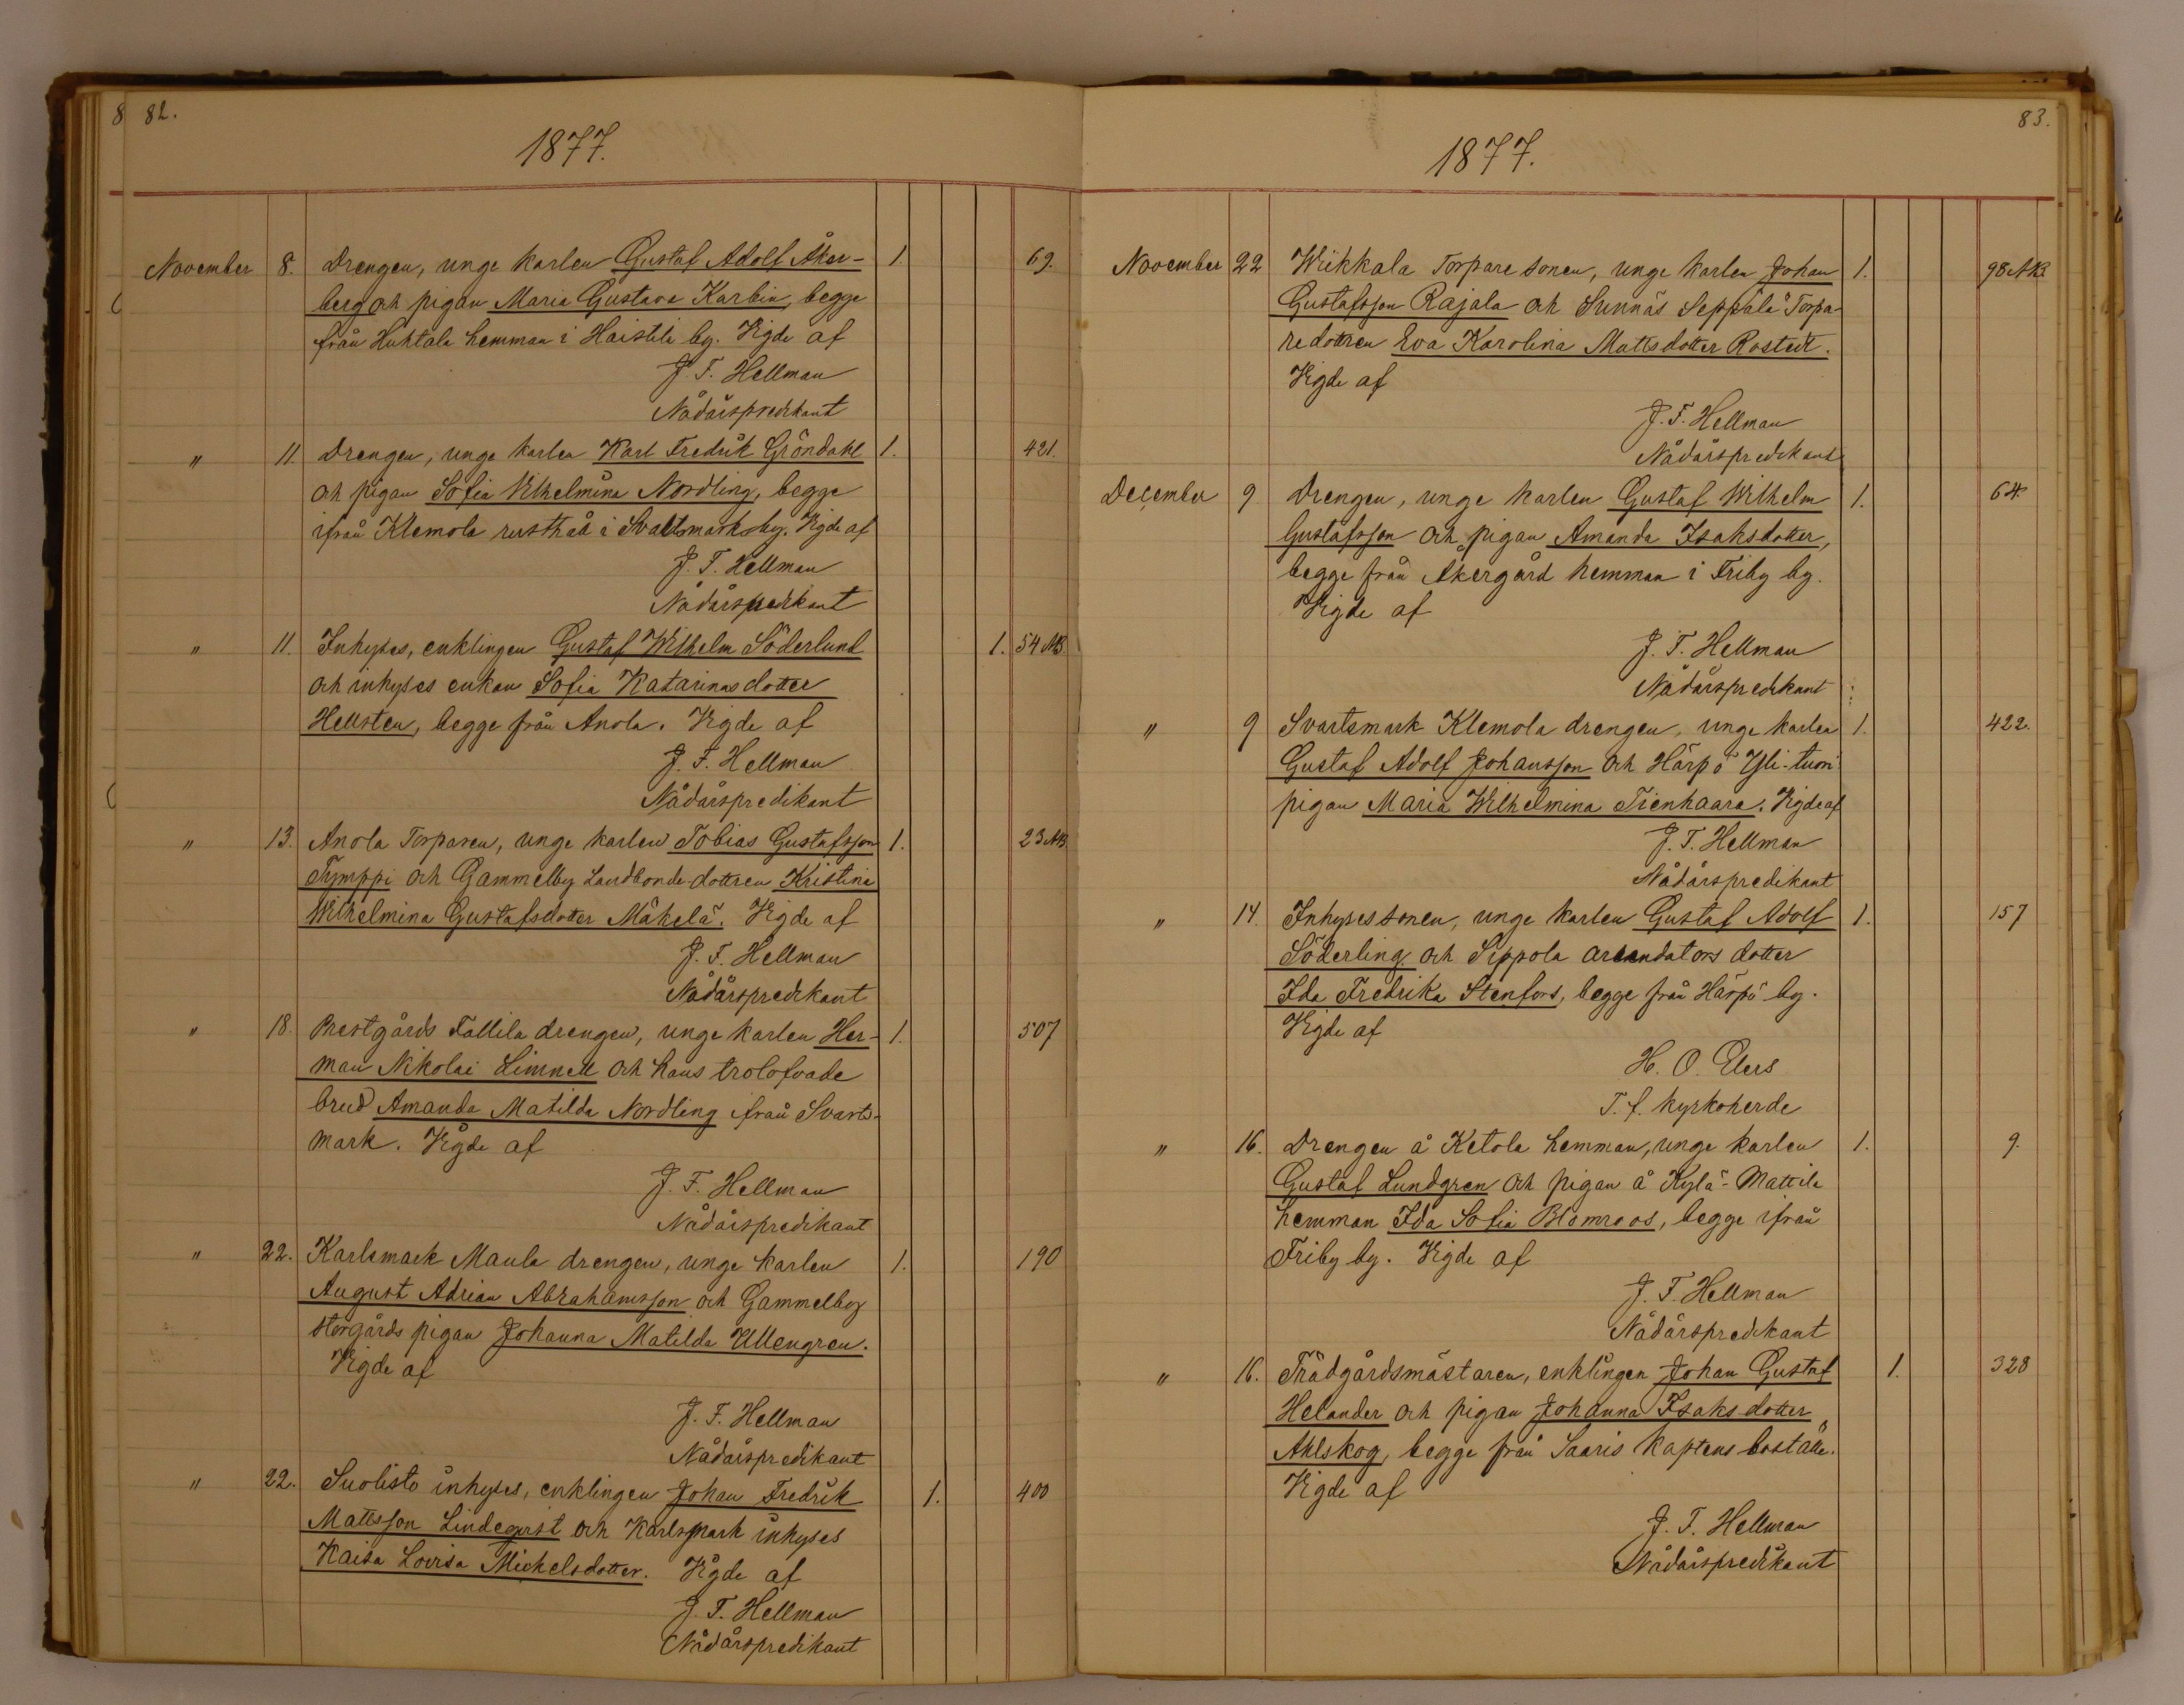 8 82.
1877.
November 8. Drengen, unge karlen Gustaf Adolf Åker- 1. 69.
berg och pigan Maria Gustava Karbin, begge
från Huhtala hemman i Haistila by. Vigde af
J. F. Hellman
Nådårspredikant
" 11. Drengen, unge karlen Karl Fredrik Gröndahl 1. 421.
och pigan Sofia Vilhelmina Nordling, begge
ifrån Klemola rusthåll i Svartsmark by. Vigde af
J. F. Hellman
Nådårspredikant
" 11. Inhyses, enklingen Gustaf Wilhelm Söderlund 1. 54 AB
och inhyses enkan Sofia Katarinasdotter
Hellsten, begge från Anola. Vigde af
J. F. Hellman
Nådårspredikant
" 13. Anola Torparen, unge karlen Tobias Gustafsson 1. 23 AB
Tymppi och Gammelby Landbonde-dottren Kristina
Wilhelmina Gustafsdotter Mäkelä. Vigde af
J. F. Hellman
Nådårspredikant
" 18. Prestgårds Tallila drengen, unge karlen Her- 1. 507
man Nikolai Limnell och hans trolofvade
brud Amanda Matilda Nordling ifrån Svarts-
mark. Vigde af
J. F. Hellman
Nådårspredikant
" 22. Karlsmark Maula drengen, unge karlen 1. 190
August Adrian Abrahamsson och Gammelby
storgårds pigan Johanna Matilda Ullengren.
Vigde af
J. F. Hellman
Nådårspredikant
" 22. Suolisto inhyses, enklingen Johan Fredrik 1. 400
Mattsson Lindeqvist och Karlsmark inhyses
Kaisa Lovisa Mickelsdotter. Vigde af
J. F. Hellman
Nådårspredikant
83.
1877.
November 22 Wiikkala Torpare sonen, unge karlen Johan 1. 98 AB.
Gustafsson Rajala och Sunnäs Seppälä Torpa-
re dottren Eva Karolina Mattsdotter Rostedt.
Vigde af
J. F. Hellman
Nådårspredikant
December 9 Drengen, unge karlen Gustaf Wilhelm 1. 64.
Gustafsson och pigan Amanda Isaksdotter,
begge från Åkergård hemman i Friby by.
Vigde af
J. F. Hellman
Nådårspredikant
" 9 Svartsmark Klemola drengen, unge karlen 1. 422.
Gustaf Adolf Johansson och Härpö Yli-tuori
pigan Maria Wilhelmina Tienhaara. Vigde af
J. F. Hellman
Nådårspredikant
" 14. Inhysessonen, unge karlen Gustaf Adolf 1. 157
Söderling och Sippola arrendators dotter
Ida Fredrika Stenfors, begge från Härpö by.
Vigde af
H. O. Elers
T. f. Kyrkoherde
" 16. Drengen å Ketola hemman, unge karlen 1. 9.
Gustaf Lundgren och pigan å Kylä-Mattila
hemman Ida Sofia Blomroos, begge ifrån
Friby by. Vigde af
J. F. Hellman
Nådårspredikant
" 16. Trädgårdsmästaren, enklingen Johan Gustaf 1. 328
Helander och pigan Johanna Isaksdotter
Ahlskog, begge från Saaris kaptens boställe.
Vigde af
J. F. Hellman
Nådårspredikant